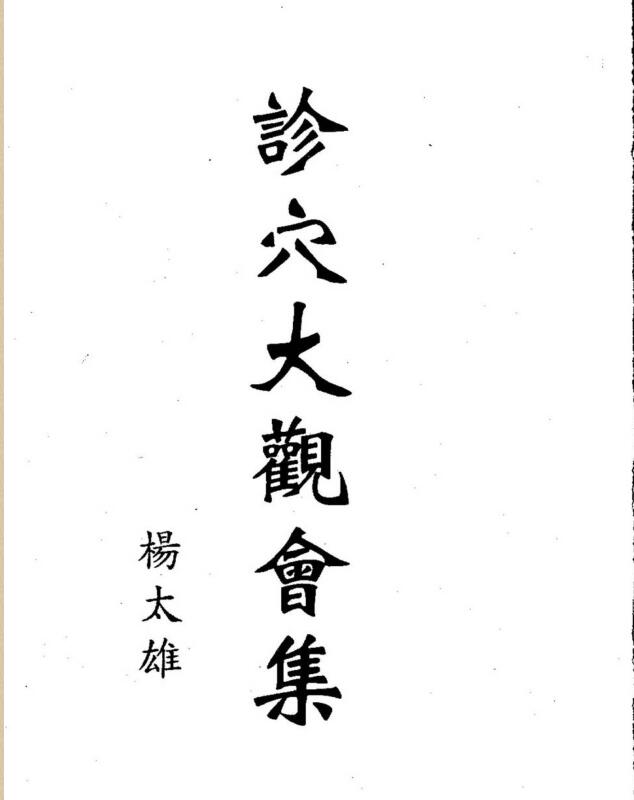 診穴大觀會集
楊太雄